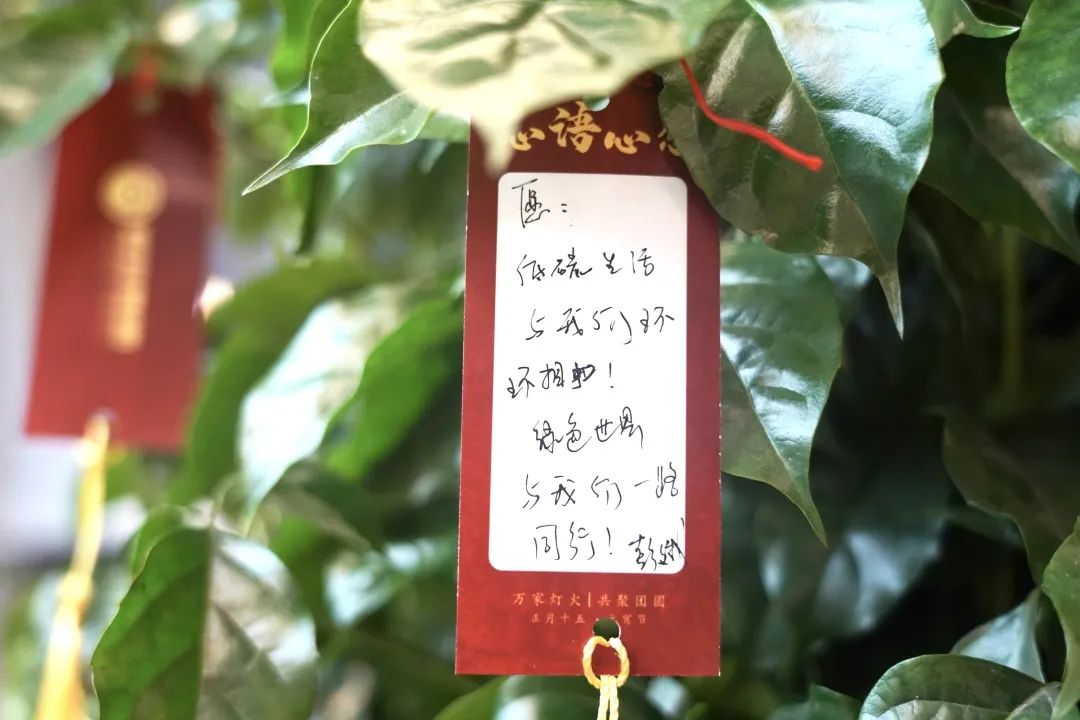 心语心
愿：
低碳生活
与我们环
环相扣！
绿色世界
与我们一路
同行！彭斌
万家灯火|共聚团圆
正月十五 宵节